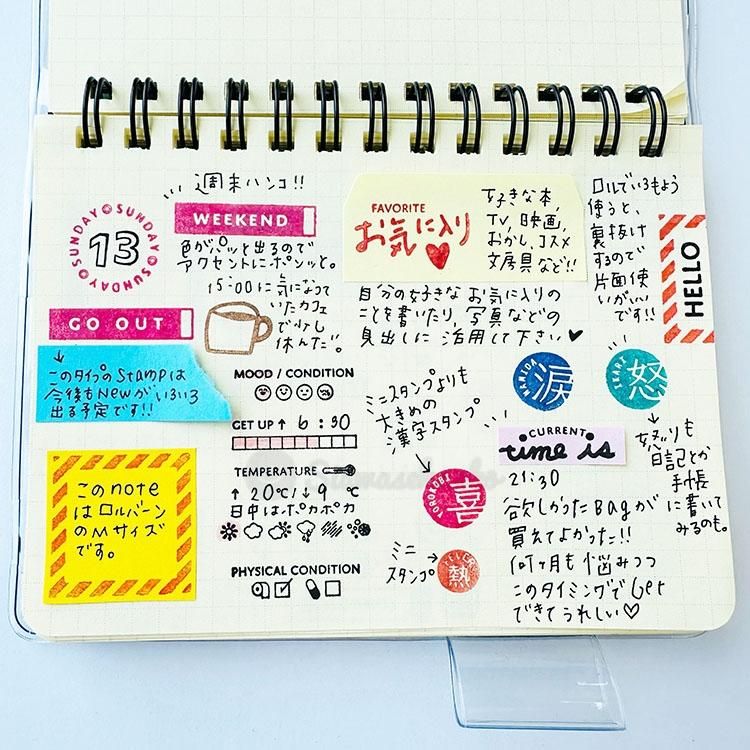 週末ハンコ!!
SUNDAY SUNDAY SUNDAY SUNDAY
13
WEEKEND
色がパッと出るので
アクセントにポンッと。
15:00に気になって
いたカフェ
で少し
休んだ。
GO OUT
↓
このタイプのStampは
今後もNewがいろいろ
出る予定です!!
このnote
はロルバーン
のMサイズ
です。
MOOD / CONDITION
GET UP ↑ 6:30
TEMPERATURE
↑20℃/↓9℃
日中はポカポカ
PHYSICAL CONDITION
FAVORITE
お気に入り
好きな本,
TV, 映画,
おかし, コスメ
文房具など!!
自分の好きな お気に入りの
ことを書いたり, 写真などの
見出しに 活用して下さい
ロルでいろもよう
使うと、
裏抜け
するので
片面使
いがいい
です!!
HELLO
ミニスタンプよりも
大きめの
漢字スタンプ
NAMIDA
涙
IKARI
怒
YOROKOBI
喜
ミニ
スタンプ
FEVER
熱
怒りも
日記とか
手帳
に書いて
みるのも。
CURRENT
time is
21:30
欲しかったBagが
買えてよかった!!
何ヶ月も悩みつつ
このタイミングでGet
できてうれしい♡